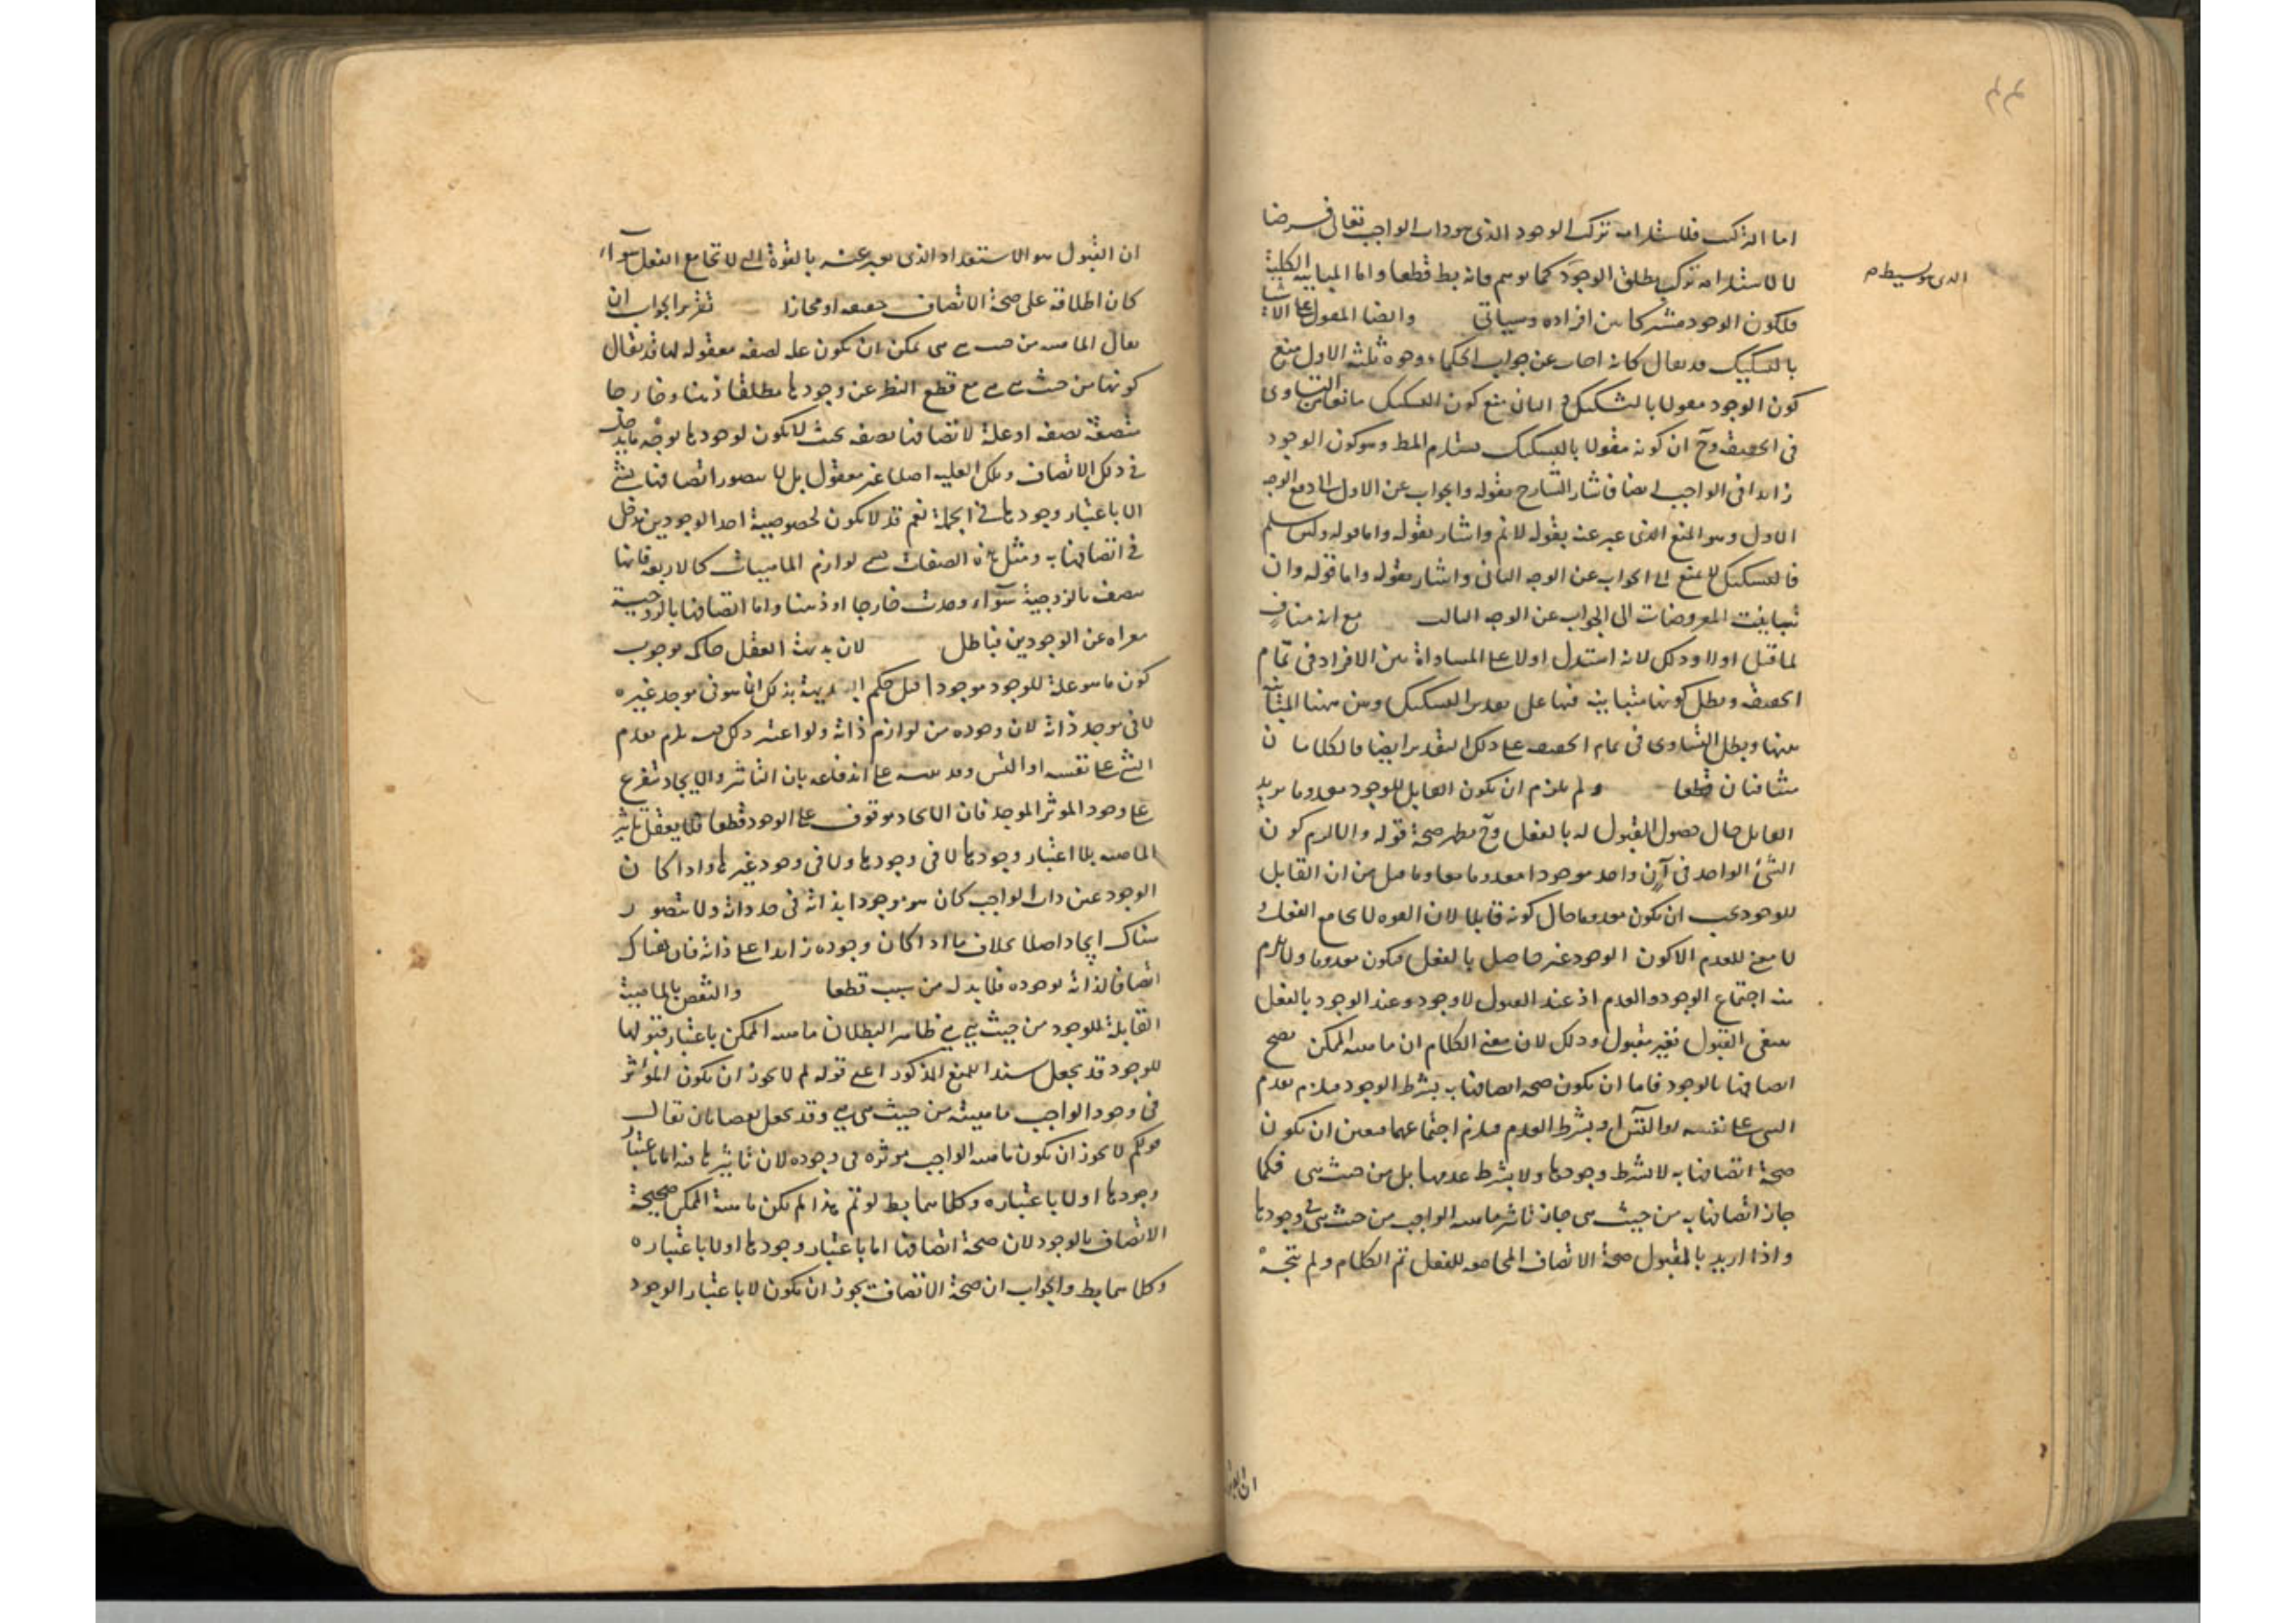 ٤٤
اما التركب فلاستلزامه تركب الوجود الذى هو ذات الواجب تعالى فرضا
الذى هو بسيط م
لا لاستلزامه تركب مطلق الوجود كما توهم فانه بط قطعا واما المباينة الكلية
فلكون الوجود مشتركا بين افراده وسياتى وايضا المقول على الاشياء
بالتشكيك قد يقال كانه اجاب عن جواب الحكماء بوجوه ثلثة الاول منع
كون الوجود مقولا بالتشكيك والثانى منع كون التشكيك مانعا من التساوى
فى الحقيقة وح ان كونه مقولا بالتشكيك يستلزم المط وهو كون الوجود
زائدا فى الواجب ايضا فاشار الشارح بقوله والجواب عن الاول الى دفع الوجه
الاول وهو المنع الذى عبر عنه بقوله لانم واشار بقوله واما قوله ولئن سلم
فالتشكيك لا يمنع الى الجواب عن الوجه الثانى واشار بقوله واما قوله وان
تباينت المعروضات الى الجواب عن الوجه الثالث مع انه مناف
لما قيل اولا وذلك لانه استدل اولا على المساواة بين الافراد فى تمام
الحقيقة وبطل كونها متباينة فيها على تقدير التشكيك وبين ههنا المباينة
بينها وبطل التساوى فى تمام الحقيقة على ذلك التقدير ايضا فالكلامان
متنافيان قطعا ولم يلزم ان يكون القابل للوجود معدوما يريد
القابل حال حصول القبول له بالفعل وح يظهر صحة قوله والا لزم كون
الشئ الواحد فى آن واحد موجودا معدوما معا وما قيل من ان القابل
للوجود يجب ان يكون معدوما حال كونه قابلا لان القوة لا تجامع الفعل و
لا معنى للعدم الا كون الوجود غير حاصل بالفعل فيكون معدوما ولا يلزم
منه اجتماع الوجود والعدم اذ عند القبول لا وجود وعند الوجود بالفعل
ينتفى القبول فغير مقبول وذلك لان معنى الكلام ان ماهية الممكن يصح
اتصافها بالوجود فاما ان يكون صحة اتصافها به بشرط الوجود فيلزم تقدم
الشئ على نفسه او التس او بشرط العدم فيلزم اجتماعهما فتعين ان يكون
صحة اتصافها به لا بشرط وجودها ولا بشرط عدمها بل من حيث هى فكما
جاز اتصافها به من حيث هى جاز تاثير ماهية الواجب من حيث هى فى وجودها
واذا اريد بالقبول صحة الاتصاف المجامعة للفعل تم الكلام ولم يتجه
ان القبول
ان القبول هو الاستعداد الذى يعبر عنه بالقوة التى لا تجامع الفعل سواء
كان اطلاقه على صحة الاتصاف حقيقة او مجازا تقرير الجواب ان
يقال الماهية من حيث هى هى يمكن ان يكون علة لصفة معقولة لها قد يقال
كونها من حيث هى هى مع قطع النظر عن وجودها مطلقا ذهنا وخارجا
متصفة بصفة او علة لاتصافها بصفة بحيث لا يكون لوجودها بوجه ما مدخل
فى ذلك الاتصاف وتلك العلية اصلا غير معقول بل لا يتصور اتصافها بشئ
الا باعتبار وجودها فى الجملة نعم قد لا يكون لخصوصية احد الوجودين مدخل
فى اتصافها به ومثل هذه الصفات هى لوازم الماهيات كالاربعة فانها
متصفة بالزوجية سواء وجدت خارجا او ذهنا واما اتصافها بالزوجية
معراة عن الوجودين فباطل لان بديهة العقل حاكمة بوجوب
كون ما هو علة للوجود موجودا قيل حكم البديهة بذلك انما هو فى موجد غيره
لا فى موجد ذاته لان وجوده من لوازم ذاته ولو اعتبر ذلك فيه يلزم تقدم
الشئ على نفسه او التس وقد نبه على اندفاعه بان التاثير والايجاد متفرع
على وجود المؤثر الموجد فان الايجاد موقوف على الوجود قطعا فلا يعقل تاثير
الماهية بلا اعتبار وجودها لا فى وجودها ولا فى وجود غيرها واذا كان
الوجود عين ذات الواجب كان هو موجودا بذاته فى حد ذاته ولا يتصور
هناك ايجاد اصلا بخلاف ما اذا كان وجوده زائدا على ذاته فان هناك
اتصافا لذاته بوجوده فلا بد له من سبب قطعا والنقض بالماهية
القابلة للوجود من حيث هى هى ظاهر البطلان ماهية الممكن باعتبار قبولها
للوجود قد يجعل سندا للمنع المذكور اعنى قوله لم لا يجوز ان يكون المؤثر
فى وجود الواجب ماهيته من حيث هى هى وقد يجعل نقضا بان يقال
قولكم لا يجوز ان يكون ماهية الواجب مؤثرة فى وجوده لان تاثيرها فيه اما باعتبار
وجودها او لا باعتباره وكلاهما بط لو تم هذا لم يكن ماهية الممكن صحيحة
الاتصاف بالوجود لان صحة اتصافها اما باعتبار وجودها او لا باعتباره
وكلاهما بط والجواب ان صحة الاتصاف يجوز ان يكون لا باعتبار الوجود